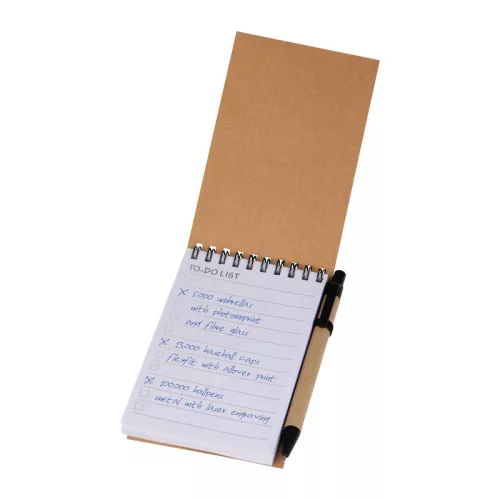 TO-DO LIST
5,000 umbrellas
with photoprint
and fibre glass
15,000 baseball caps
flexfit with allover print
100.000 ballpens
metal with laser engraving